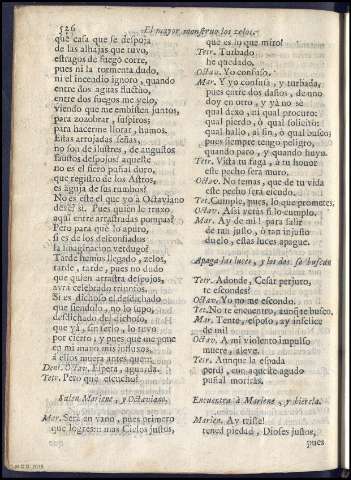 526
El mayor monstruo los zelos.
que casa que se despoja
de las alhajas que tuvo,
estragos de fuego corre,
pues ni la tormenta dudo,
ni el incendio ignoro, quando
entre dos aguas fluctúo,
entre dos fuegos me yelo,
viendo que me embisten juntos,
para zozobrar, suspiros;
para hacerme llorar, humos.
Estas arrojadas señas,
no son de ilustres, de augustos
faustos despojos? aqueste
no es el fiero puñal duro,
que registro de los Astros,
es aguja de sus rumbos?
No es este el que yo à Octaviano
dexè? si. Pues quien le truxo
aqui entre arrastradas pompas?
Pero para què lo apuro,
si es de los desconfiados
la imaginacion verdugo?
Tarde hemos llegado, zelos,
tarde, tarde, pues no dudo
que quien arrastra despojos,
avrà celebrado triunfos.
Si es dichoso el desdichado
que siendolo, no lo supo,
desdichado del dichoso,
que yà, sin serlo, lo tuvo
por cierto, y pues que me pone
en mi mano mis influxos,
à ellos muera antes que:
Dent. Octav. Espera, aguarda.
Tetr. Pero què escucho?
Salen Mariene, y Octaviano.
Mar. Serà en vano, pues primero
que logres: mas Cielos justos,
que es lo que miro!
Tetr. Turbado
he quedado.
Octav. Yo confuso.
Mar. Y yo confusa, y turbada,
pues entre dos daños, de uno
doy en otro, y yà no sè
qual dexo, ni qual procuro;
qual pierdo, ò qual solicito;
qual hallo, al fin, ò qual busco;
pues siempre tengo peligro,
quando paro, y quando huyo.
Tetr. Vida tu fuga, à tu honor
este pecho serà muro.
Octav. No temas, que de tu vida
este pecho serà escudo.
Tet. Cumple, pues, lo que prometes.
Octav. Assi veràs si lo cumplo.
Mar. Ay de mi! para salir
de tan justo, ò tan injusto
duelo, estas luces apague.
Apaga las luces, y los dos se buscan
Tetr. Adonde, Cesar perjuro,
te escondes?
Octav. Yo no me escondo.
Tet. No te encuentro, aunque te busco.
Mar. Tente, esposo, ay infelice
de mi!
Octav. A mi violento impulso
muere, aleve.
Tetr. Aunque la espada
perdì, con aqueste agudo
puñal moriràs.
Encuentra à Mariene, y hierela.
Marien. Ay triste!
tened piedad, Dioses justos,
pues